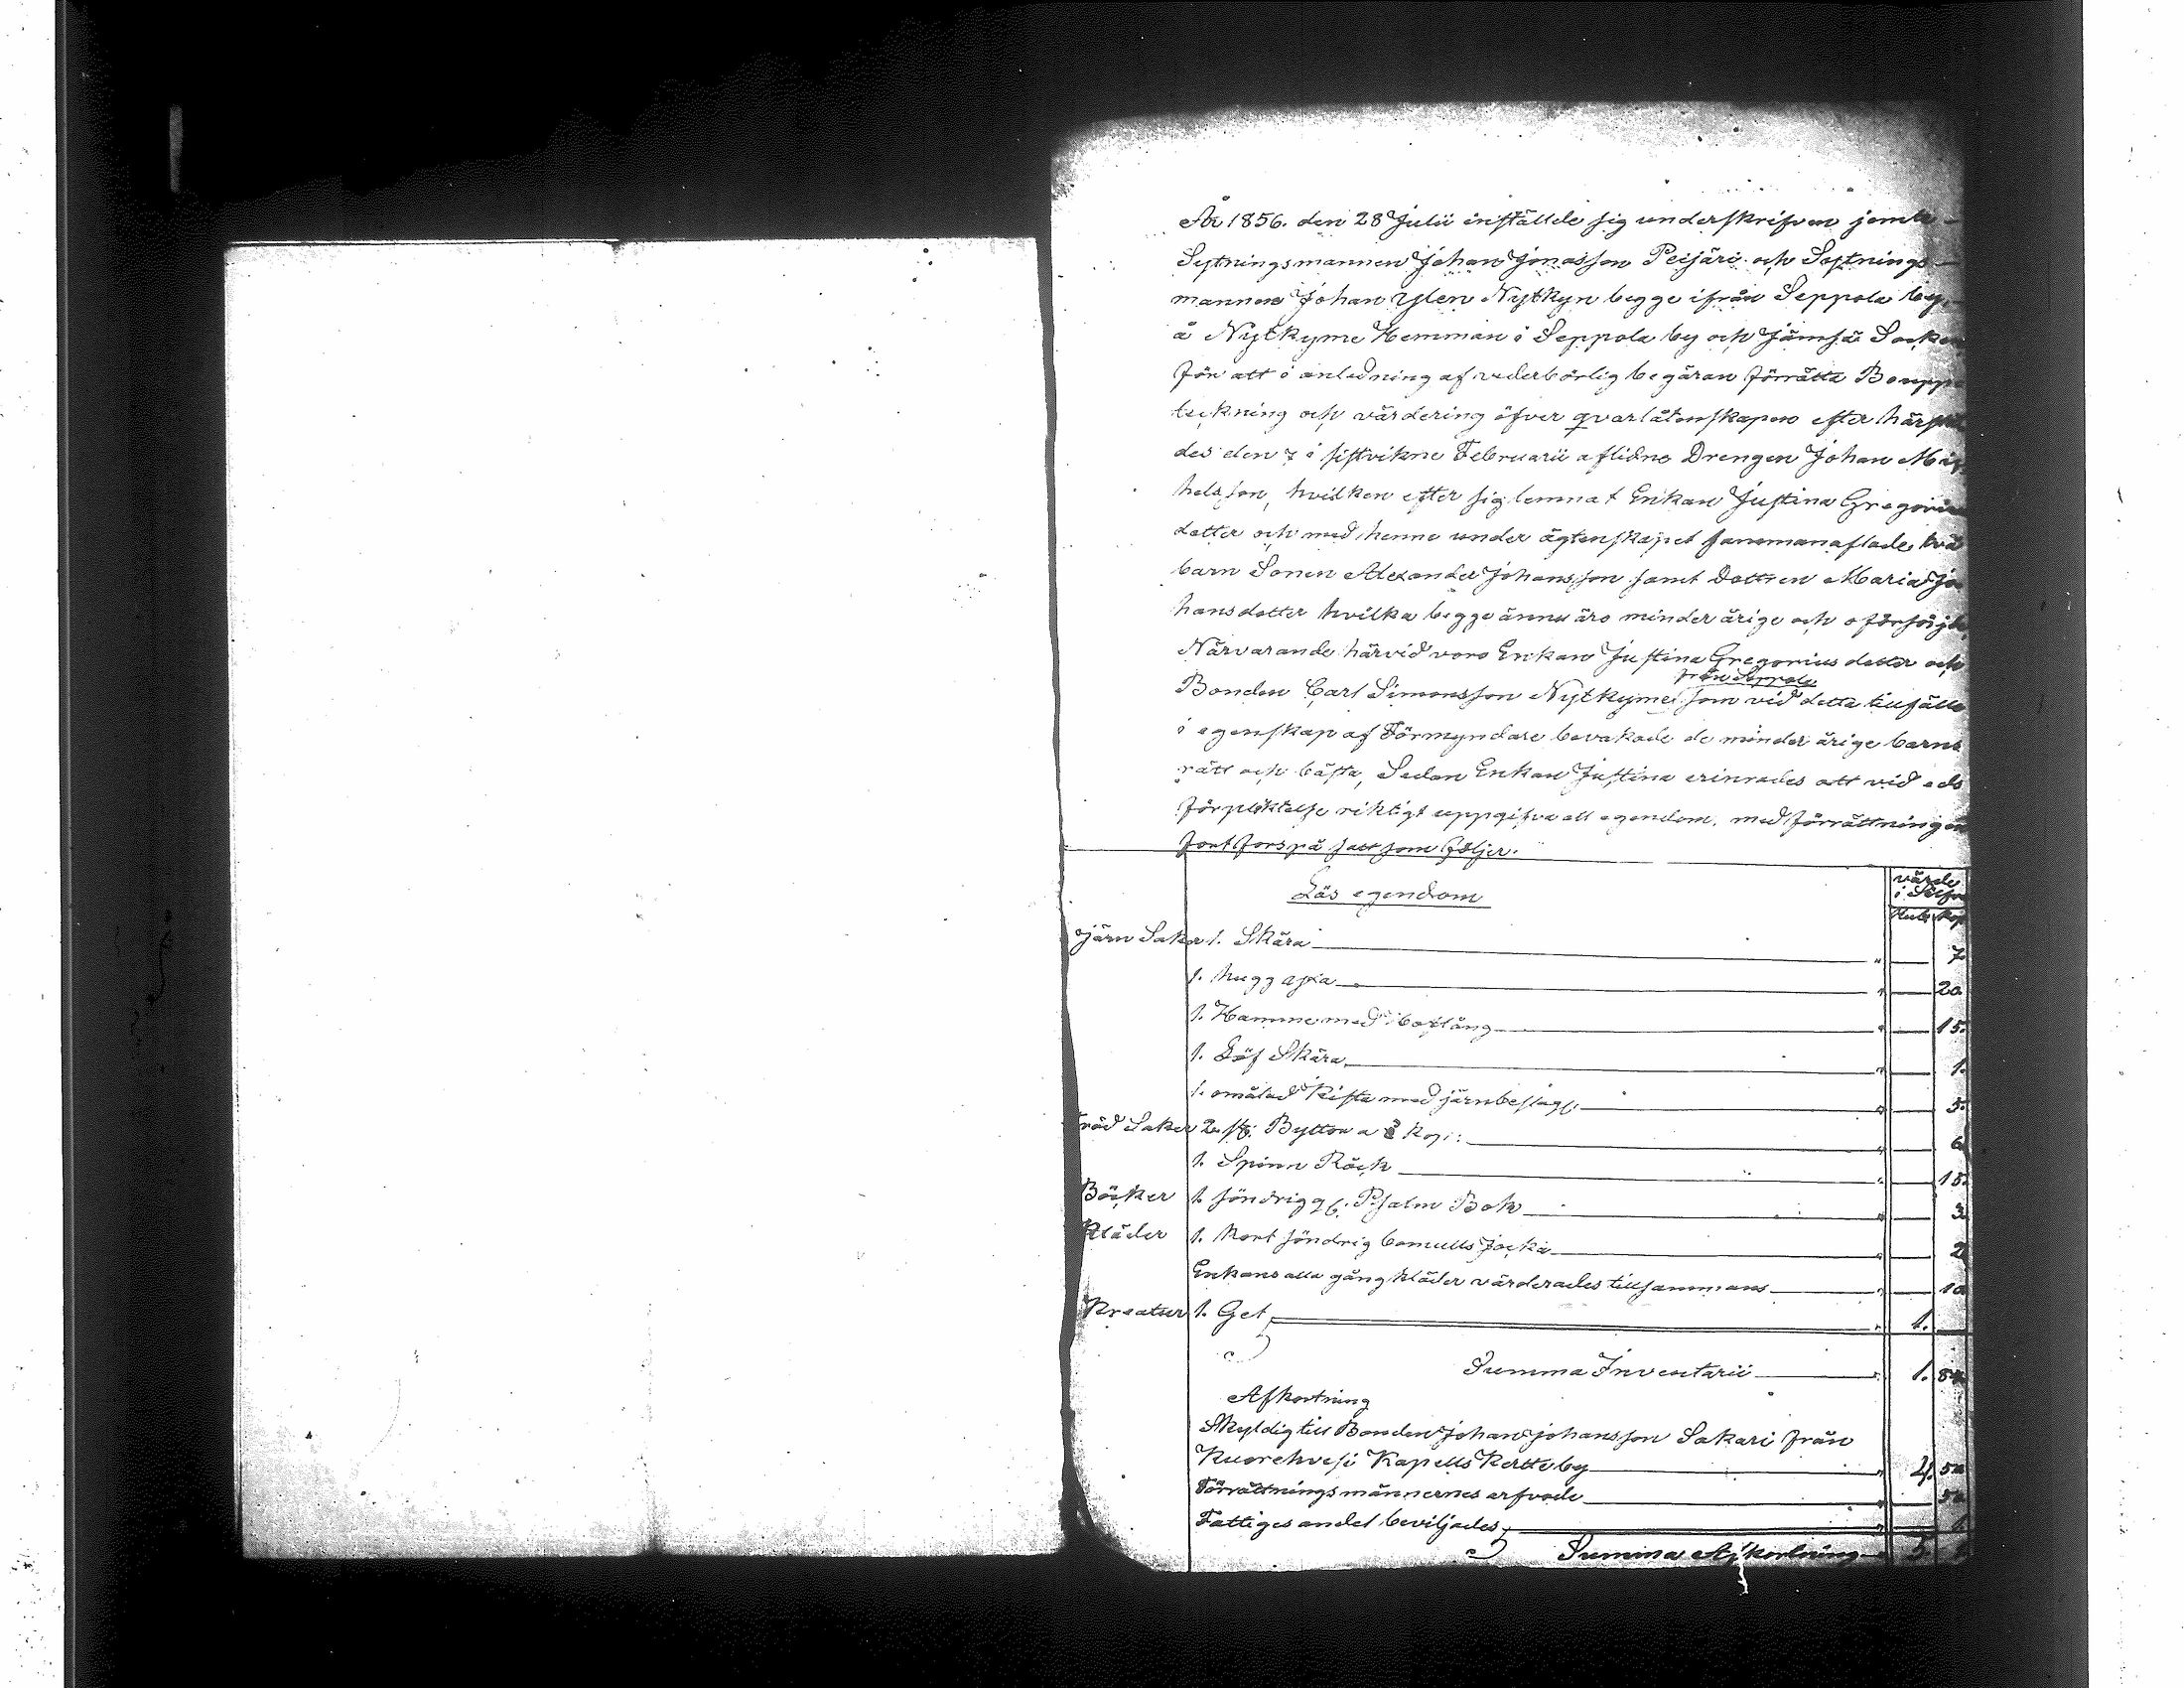 År 1856. den 28 Julii instälde sig underskrifven jemte
Sytningsmannen Johan Jonasson Peijäri och Sytnings-
mannen Johan Ylen Nytkyn begge ifrån Seppola by,
å Nytkyme Hemman i Seppola by och Jämsä Socken
för att i anledning af vederbörlig begäran förrätta Boupp
teckning och värdering öfver qvarlåtenskapen efter härstä
des den 7 i sistvikne Februarii aflidne Drengen Johan Mi
helsson, hvilken efter sig lemnat Enkan Justina Gregorius
dotter och med henne under ägtenskapet sammanaflade två
barn Sonen Alexander Johansson samt Dottren Maria Jo
hansdotter hvilka begge ännu äro minder ärige och oförsörjde
Närvarande härvid voro Enkan Justina Gregorius dotter och
från Seppola
Bonden Carl Simonsson Nytkyme som vid detta tillfälle
i egenskap af Förmyndare bevakade de minder ärige barns
rätt och bästa, Sedan Enkan Justina erinrades att vid eds
förpliktelse riktigt uppgifva all egendom, med förrättningen
fortfors på sätt som följer.
Lös egendom värde i Silfver
Rub kop
Järn Saker 1. Skära " 7
1. hugg axa " 20
1. Hamme med " 15.
1. Löf Skära " 1.
1. omålad Kista med järnbeslag " 5.
Träd Saker 2. st. Byttor a 3 kop: " 6
1. Spinn Råck " 15.
Böcker 1. söndrig gl. Psalm Bok " 3
Kläder 1. kort söndrig bomulls jocka " 2
Enkans alla gång kläder värderades tillsammans " 10
Kreatur 1. Get " 1.
Summa Inventarii " 1. 84
Afkortning
Skyldig till Bonden Johan Johansson Sakari från
Kuorehvesi Kapells Kertte by " 4. 50
Förrättnings männernes arfvode " 50
Fattiges andel beviljades "
Summa Afkortning 5.